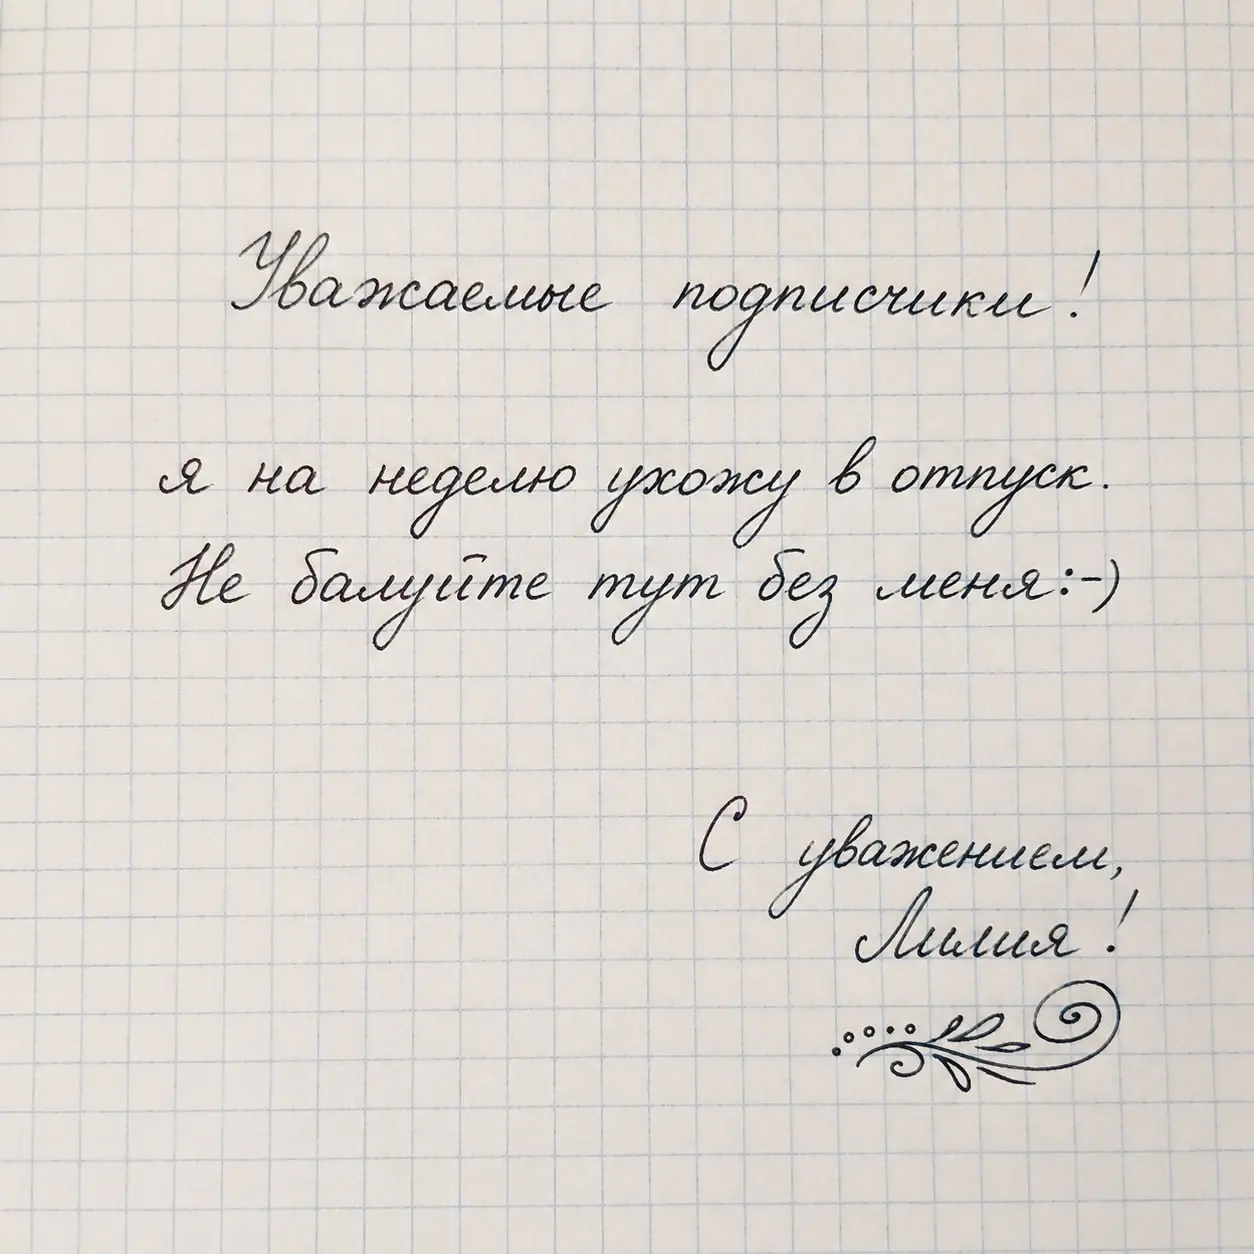 Уважаемые подписчики!
я на неделю ухожу в отпуск.
Не балуйте тут без меня:-)
С уважением,
Лилия!